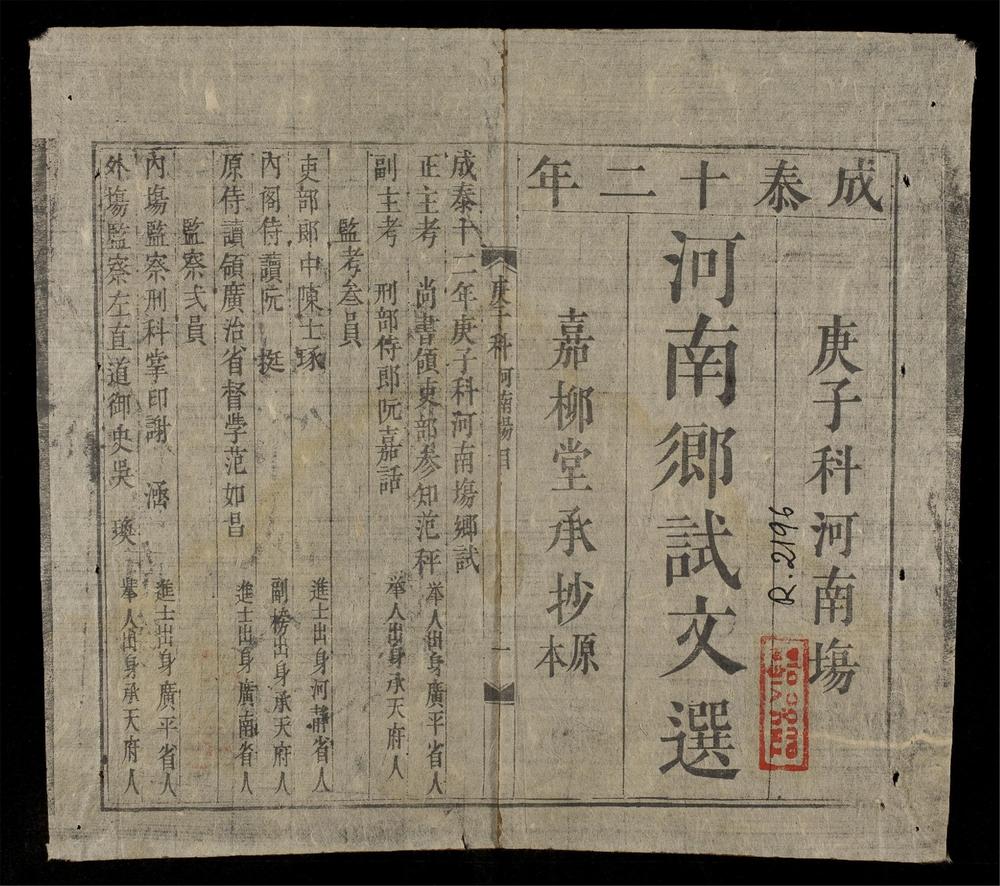 成泰十二年
庚子科河南塲
河南鄉試文選
嘉柳堂承抄原本
R.2196
THƯ VIỆN
QUỐC GIA
庚子科 河南塲目 一
成泰十二年庚子科河南塲鄉試
正主考 尚書領吏部參知范秤 举人出身廣平省人
副主考 刑部侍郎阮嘉話 举人出身承天府人
監考叁員
吏部郎中陳士琢 進士出身河靜省人
內阁侍讀阮 挺 副榜出身承天府人
原侍讀領廣治省督學范如昌 進士出身廣南省人
監察弍員
內塲監察刑科掌印謝 涵 進士出身廣平省人
外塲監察左直道御史吳 瑍 舉人出身承天府人